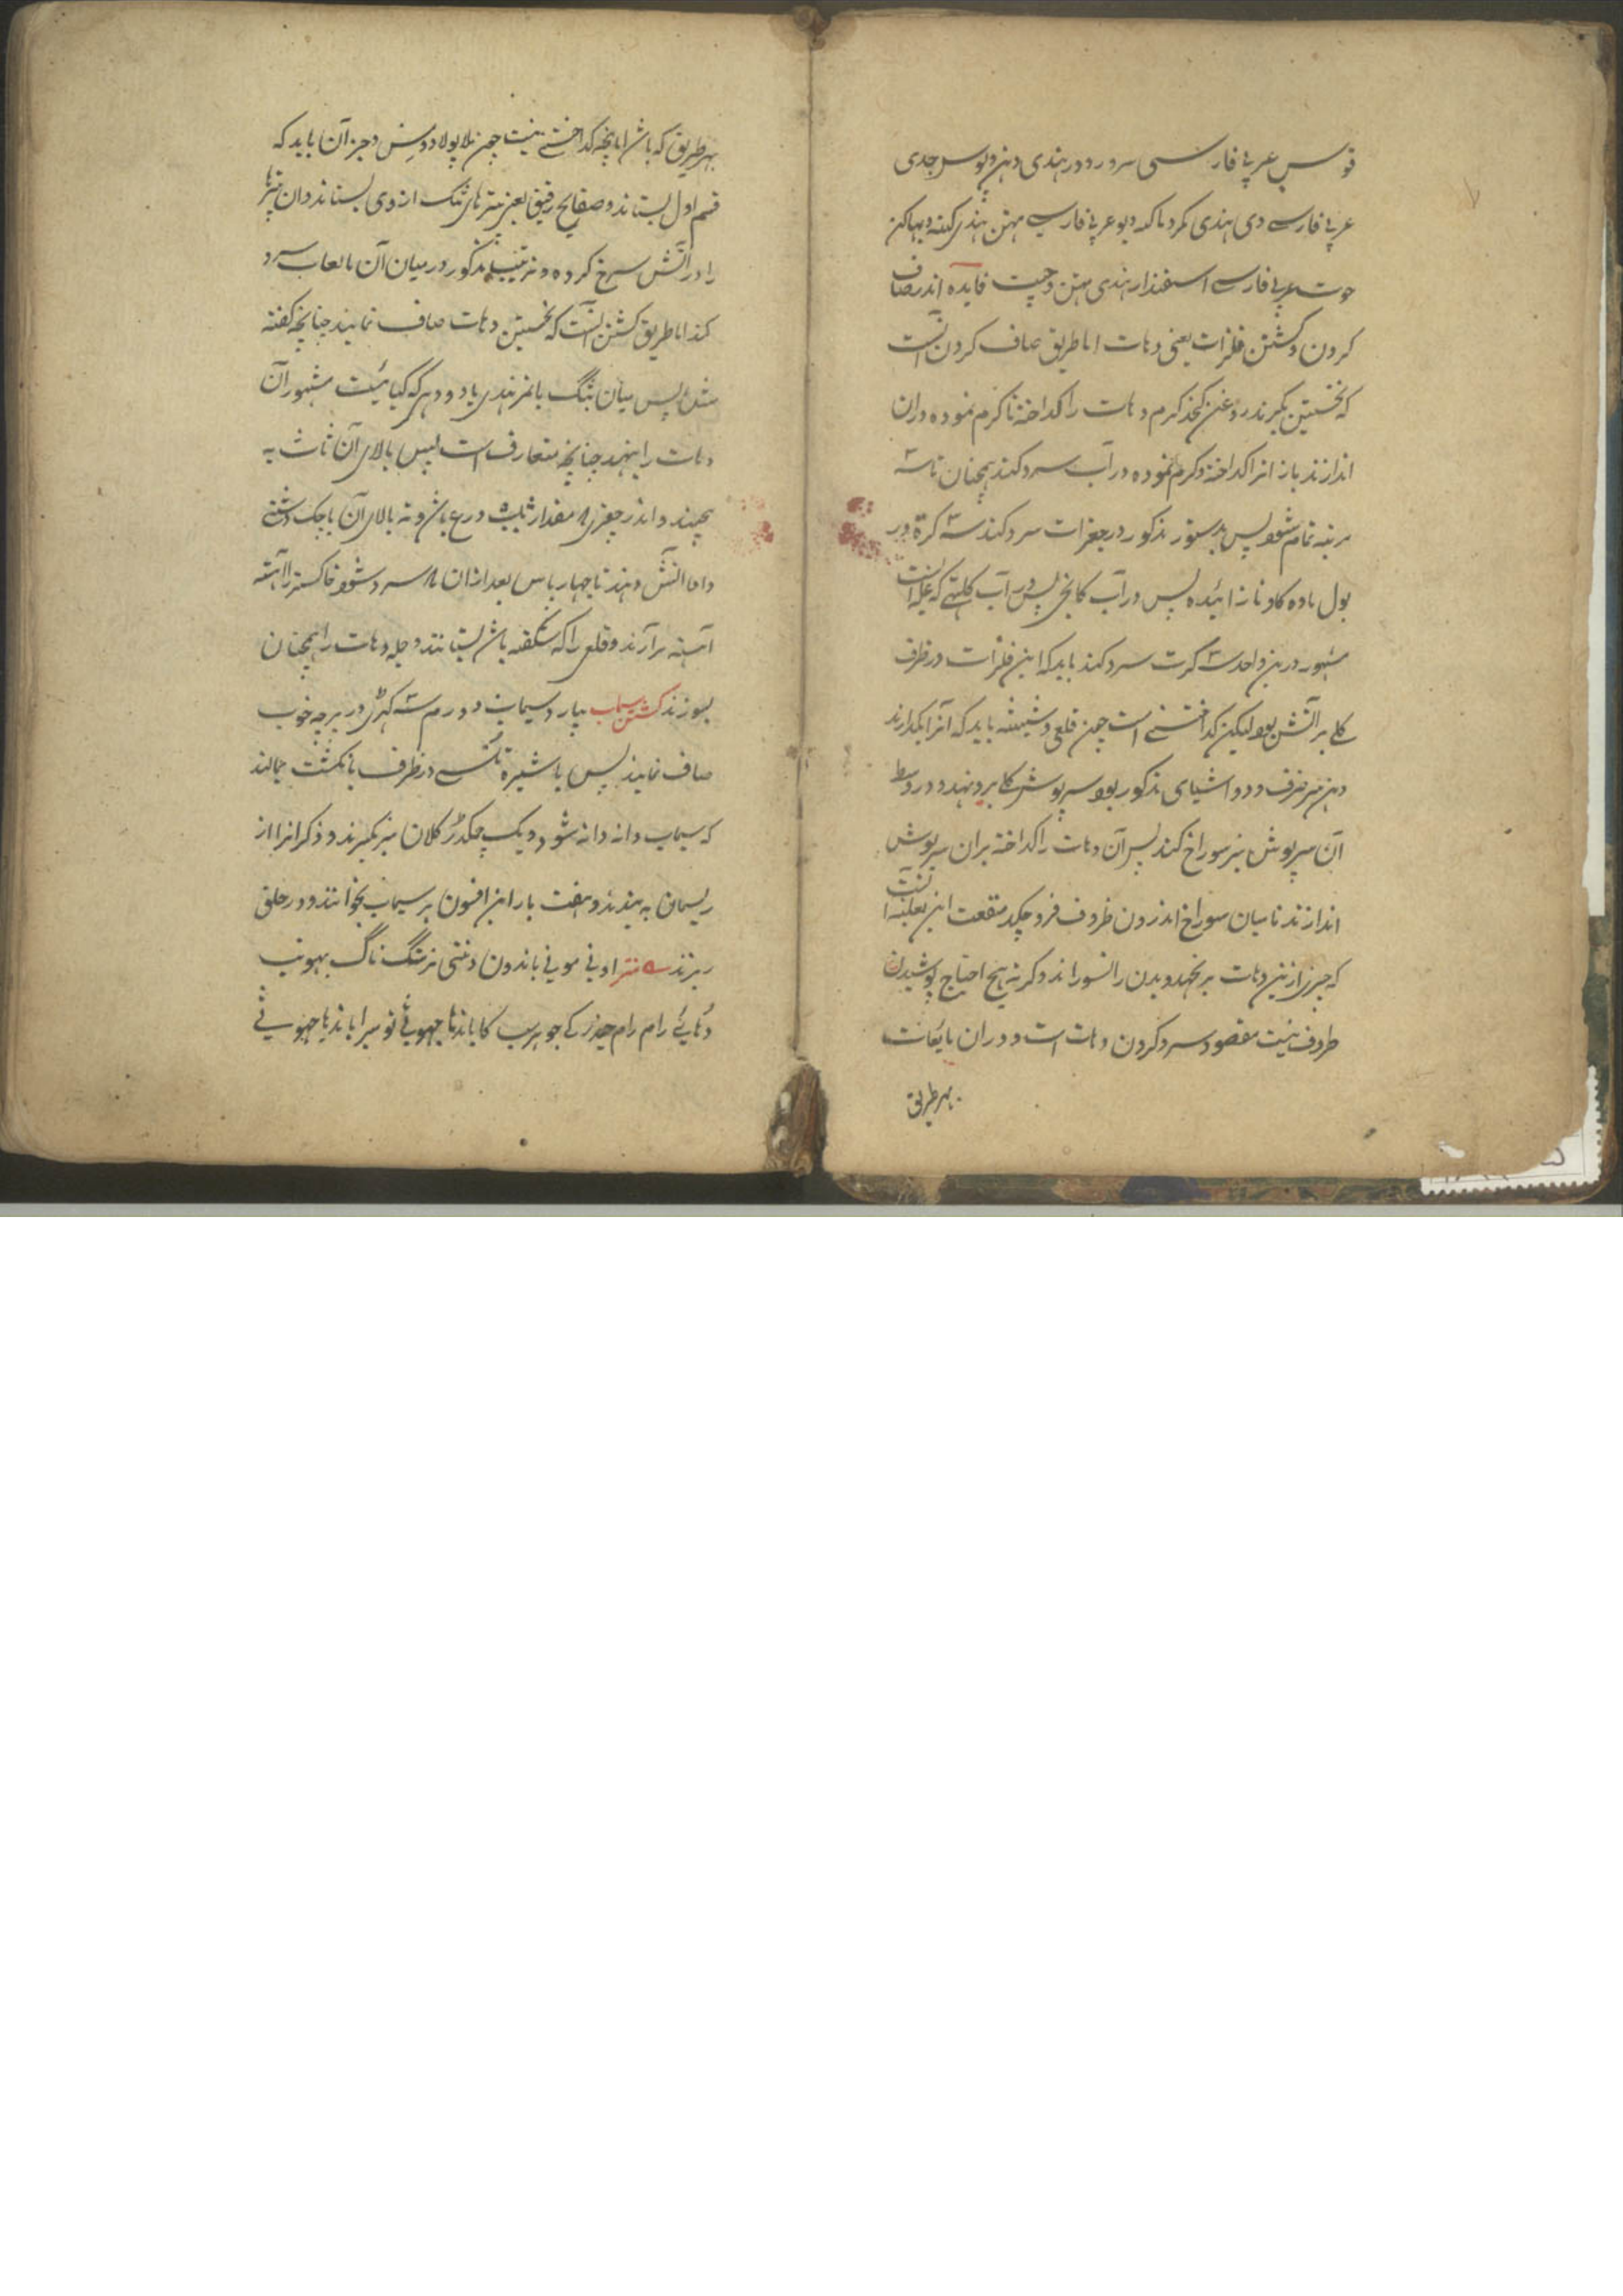 قوس عربی فارسی سرورد در هندی دهن و پوس جدی
عربی فارسی دی هندی مکر و ماکهه دیو عربی فارسی بهمن هندی کنبه و پهاکن
حوت عربی فارسی اسفندار هندی مین و چیت فایده اندر صاف
کردن و کشتن فلزات یعنی دهات اما طریق صاف کردن آنست
که نخستین بگیرند روغن کنجد گرم دهات را کداخته تا گرم نموده دران
اندازند باز انرا کداخته و گرم نموده در آب سرد کنند همچنان تا سه
مرتبه تمام شود پس بدستور مذکور در جغرات سرد کنند سه کرة در
بول ماده کاو نازائیده پس در آب کانجی پس در آب کلتهی که غله است
مشهور درین واحد سه کرت سرد کنند باید که این فلزات در ظرف
کلی بر آتش بود لیکن کداختنی است چون قلعی و شیشه باید که آنرا بکدارند
دهن هر ظرف که درو اشیای مذکور بود سرپوش کلی برو نهند و در وسط
آن سرپوش نیز سوراخ کنند پس آن دهات را کداخته بران سرپوش
اندازند تا میان سوراخ اندرون ظروف فرو چکد منفعت این تعلیه آنست
که چیزی ازین دهات بر نجهد و بدن را نسوزاند و کرنه هیچ احتیاج پوشیدن
ظروف نیست مقصود سرد کردن دهات است در ان مایعات
بهر طریق
بهر طریق که باشد اما آنچه کداختنی نیست چون طلا پولاد و مس و جز آن باید که
قسم اول بستانند و صفایح رقیق یعنی پترهای تنک از وی بستانند و ان پترها
را در آتش سرخ کرده و بترتیب مذکور در میان آن مایعات سرد
کنند اما طریق کشتن آنست که نخستین دهات صاف نمایند چنانچه کفته
شد پس میان بنگ یا تمر هندی یا دودهی که کیاهیست مشهور آن
دهات را بنهند چنانچه متعارف است پس بالای آن تاث به
پیچند و اندر چقری که مقدار ثلث درع باشد و ته بالای آن پاچک دشتی
داده آتش دهند تا چهار پاس بعد ازان که سرد شود خاکستر را آهسته
آهسته برآرند و قلعی را که شکفته باشد بستانند و جمله دهات را همچنان
بسوزند کشتن سیماب بیارد سیماب دو درم سه کهری در پرچه خوب
صاف نمایند پس با شیره تلسی در ظرف بانکشت بمالند
که سیماب دانه دانه شود و یک چکدر کلان نیز بگیرند و ذکر انرا از
ریسمان به بندند و هفت بار این افسون بر سیماب بخوانند و در حلق
ریزند منتر
دهائی رام رام چندر کی جو هرب کا باندها چهوتی تو میرا باندها چهوتی